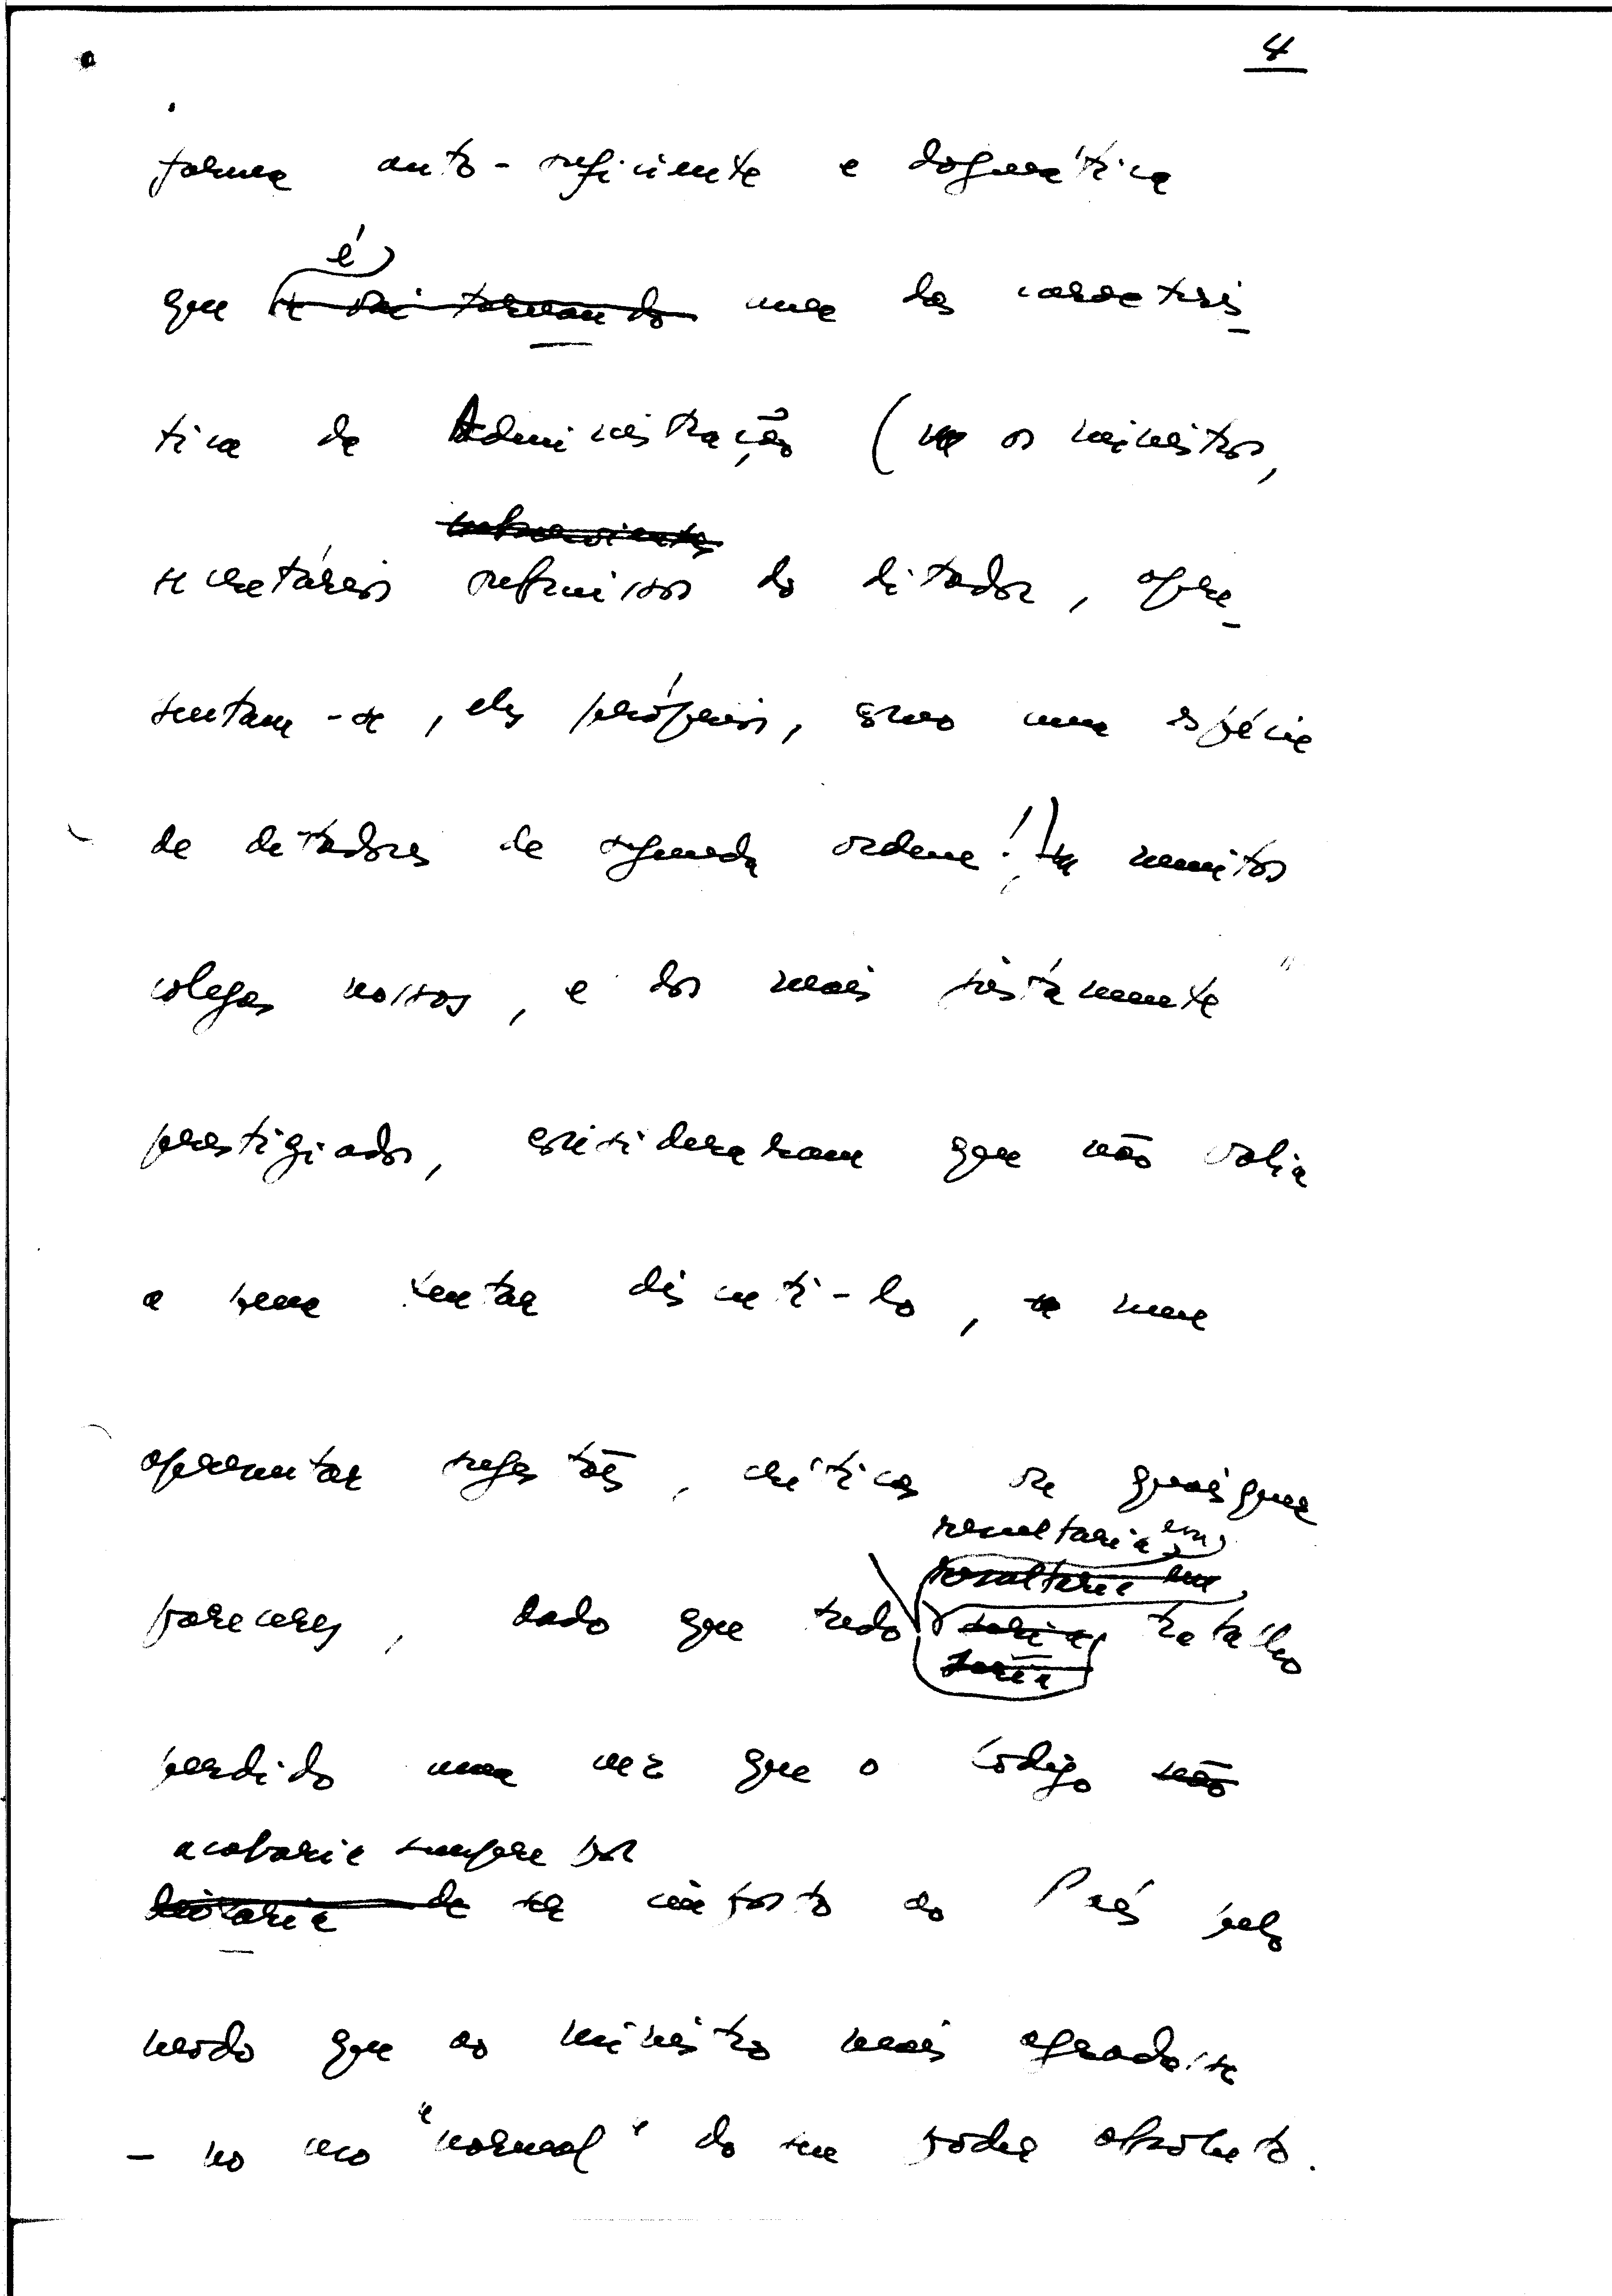 4
forma auto-suficiente e dogmática
é
que se vai tornando uma das caracterís-
tica da Administração ( os ministros,
secretários submissos do ditador, apre-
sentam-se, eles próprios, como uma espécie
de ditadores de segunda ordem!) muitos
colegas nossos, e dos mais justamente
prestigiados, consideraram que não valia
a pena tentar discuti-lo, nem
apresentar sugestões, críticas ou quaisquer
resultaria em
resultaria em
pareceres, dado que tudo seria trabalho
seria
perdido uma vez que o Código não
acabaria sempre por
deixaria de ser imposto ao País pelo
modo que ao ministro mais agradasse
- no uso "normal" do seu poder absoluto.